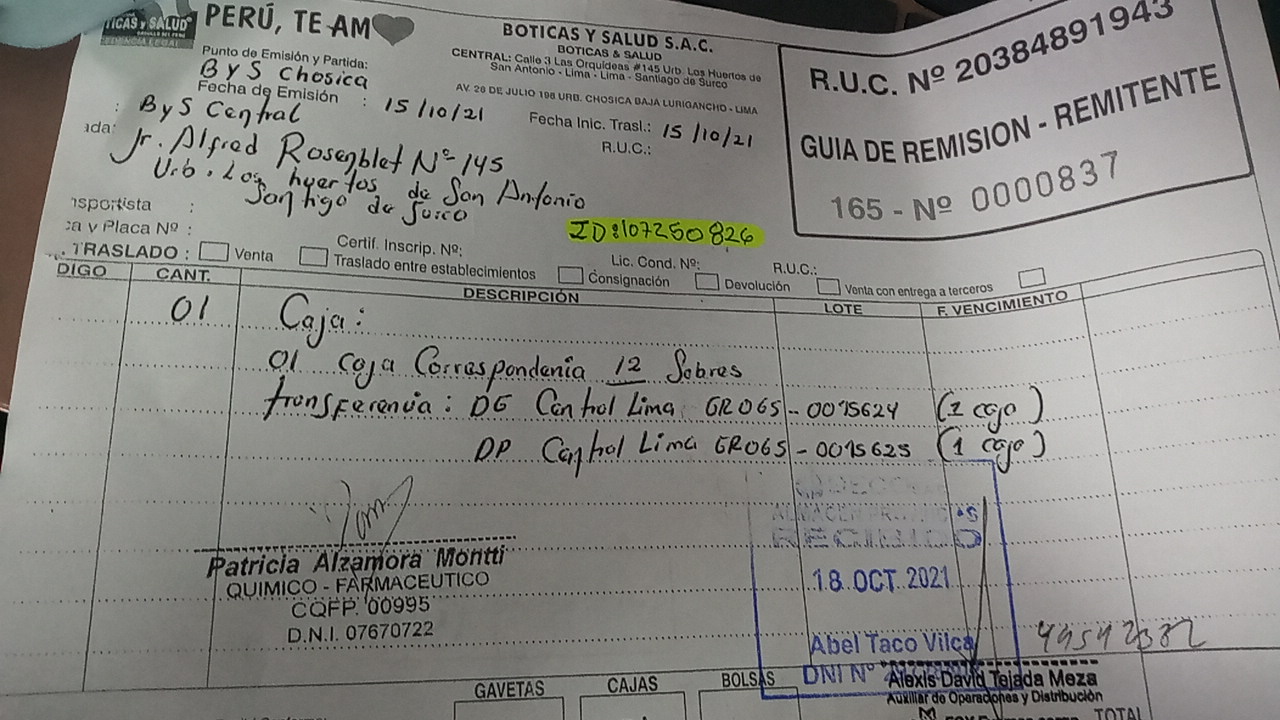 TICAS y SALUD
PERÚ, TE AM
Punto de Emisión y Partida:
ByS Chosica
Fecha de Emisión : 15/10/21
BOTICAS Y SALUD S.A.C.
BOTICAS & SALUD
CENTRAL: Calle 3 Las Orquídeas #145 Urb. Los Huertos de
San Antonio - Lima - Lima - Santiago de Surco
AV. 28 DE JULIO 198 URB. CHOSICA BAJA LURIGANCHO - LIMA
Fecha Inic. Trasl.: 15/10/21
R.U.C.:
R.U.C. Nº 20384891943
GUIA DE REMISION - REMITENTE
165 - Nº 0000837
: ByS Central
ada: Jr. Alfred Rosenblet Nº 145
Urb. Los huertos de San Antonio
Santigo de Surco
nsportista :
ca y Placa Nº :
ID:107250826
Certif. Inscrip. Nº:
Lic. Cond. Nº:
R.U.C.:
. TRASLADO: Venta Traslado entre establecimientos Consignación Devolución Venta con entrega a terceros
DIGO CANT. DESCRIPCIÓN LOTE F. VENCIMIENTO
01 Caja:
01 caja Correspondenia 12 Sobres
transferencia: DE Control Lima GR065-0015624 (1 caja)
DP Control Lima GR065-0015625 (1 caja)
Patricia Alzamora Montti
QUIMICO - FARMACEUTICO
CQFP. 00995
D.N.I. 07670722
RECIBIDO
18 OCT. 2021
Abel Taco Vilca
DNI Nº
49592382
Alexis David Tejada Meza
Auxiliar de Operaciones y Distribución
GAVETAS CAJAS BOLSAS TOTAL